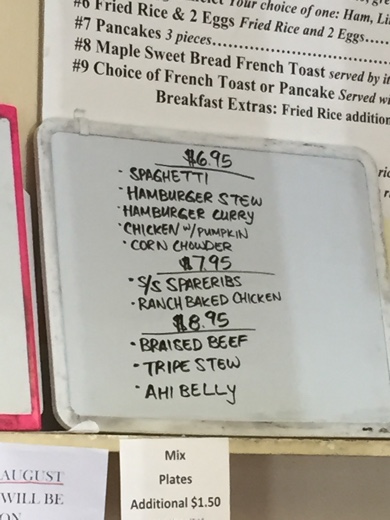 Your choice of one: Ham,
#6 Fried Rice & 2 Eggs Fried Rice and 2 Eggs....
#7 Pancakes 3 pieces........................
#8 Maple Sweet Bread French Toast served by
#9 Choice of French Toast or Pancake Served
Breakfast Extras: Fried Rice
$6.95
· SPAGHETTI
· HAMBURGER STEW
· HAMBURGER CURRY
· CHICKEN W/PUMPKIN
· CORN CHOWDER
$7.95
· S/S SPARERIBS
· RANCH BAKED CHICKEN
$8.95
· BRAISED BEEF
· TRIPE STEW
· AHI BELLY
AUGUST
WILL BE
ON
Mix
Plates
Additional $1.50